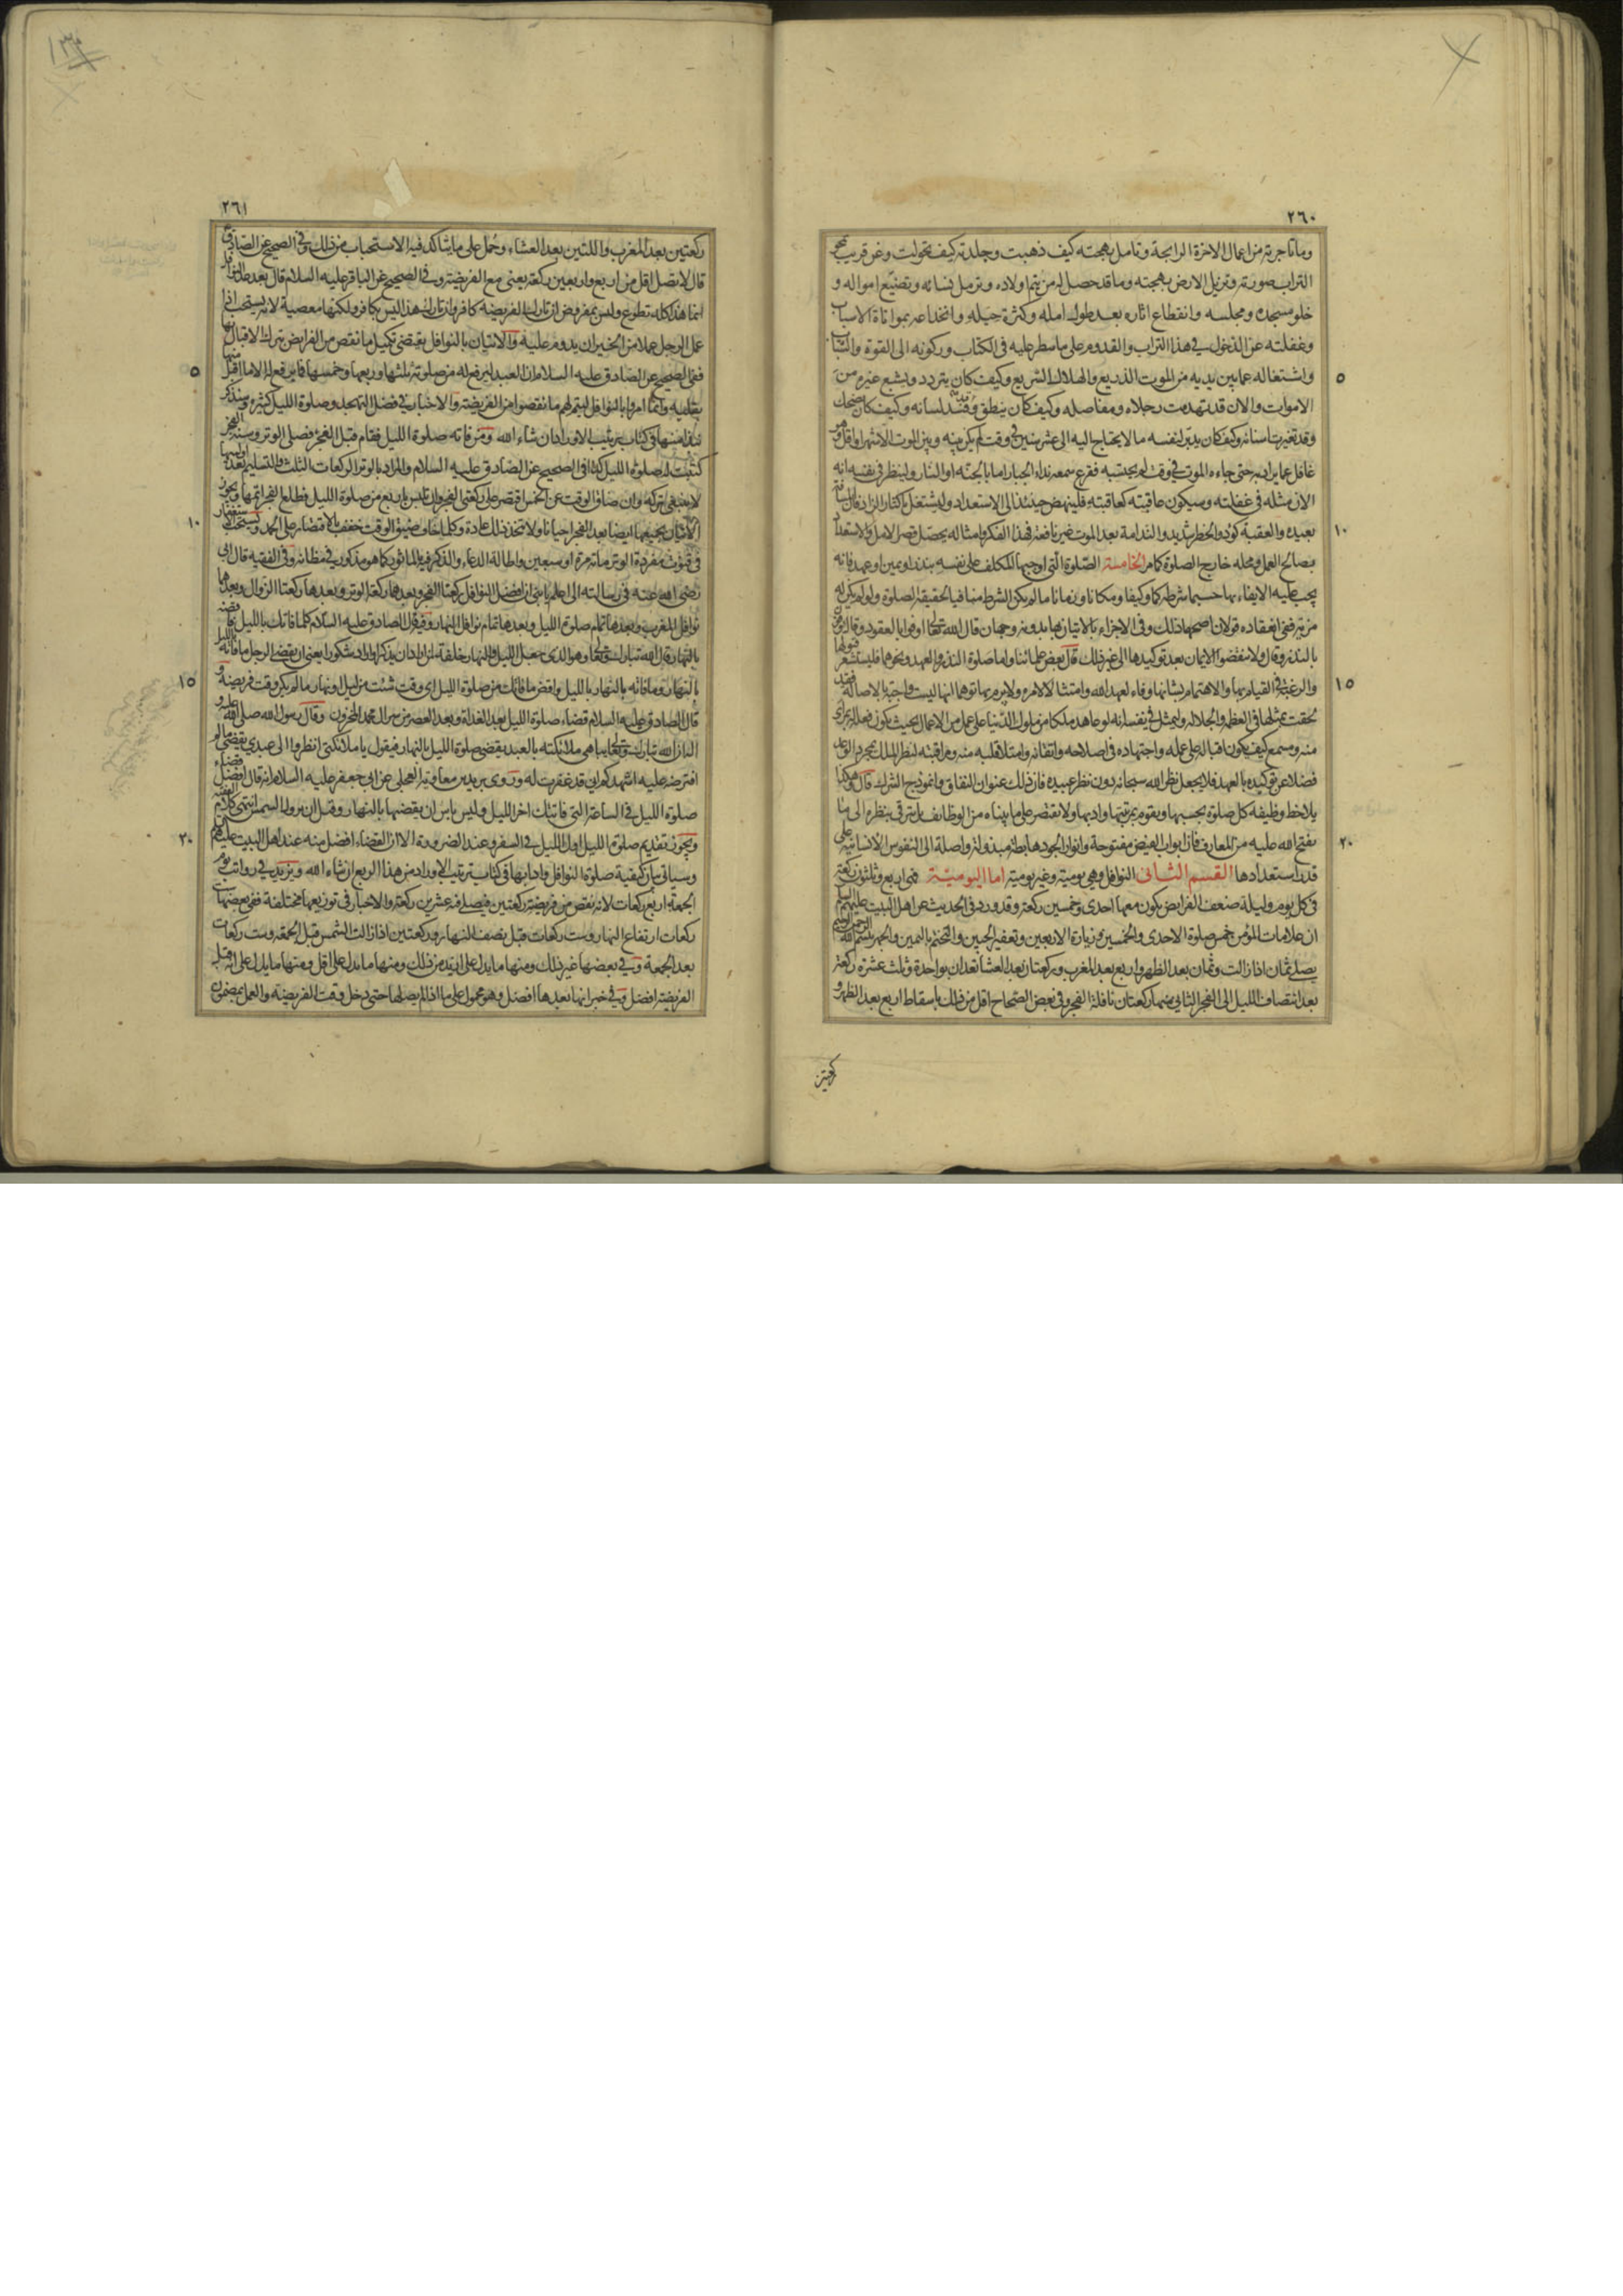 ٢٦٠
وما تاجر به من اعمال الاخرة الرابحة وتامل بهجته كيف ذهبت وجلدته كيف تحولت وعن قريب يمحو
التراب صورته وتزيل الارض بهجته وما قد حصل له من يتم اولاده وترمل نسائه وتضييع امواله و
خلو مسجده ومجلسه وانقطاع اثاره بعد طول امله وكثرة حيله وانخداعه بمواتاة الاسباب
وغفلته عن الدخول في هذا التراب والقدوم على ما سطر عليه في الكتاب وركونه الى القوة والشباب
واشتغاله عما بين يديه من الموت الذريع والهلاك السريع وكيف كان يتردد ويشيع غيره من
٥
الاموات والان قد تهدمت رجلاه ومفاصله وكيف كان ينطق وقد فسد لسانه وكيف كان يضحك
وقد تغيرت اسنانه وكيف كان يدبر لنفسه ما لا يحتاج اليه الى عشر سنين في وقت لم يكن بينه وبين الموت الا شهر او اقل وهو
غافل عما يراد به حتى جاءه الموت في وقت لم يحتسبه فقرع سمعه نداء الجبار اما بالجنة او النار ولينظر في نفسه انه
الان مثله في غفلته وسيكون عاقبته كعاقبته فلينهض حينئذ الى الاستعداد وليشتغل باكثار الزاد فان المسافة
بعيدة والعقبة كؤد والخطر شديد والندامة بعد الموت غير نافعة فهذا الفكر وامثاله يحصل قصر الامل والاستعداد
١٠
بصالح العمل ومحله خارج الصلوة كما مر الخامسة الصلوة التي اوجبها المكلف على نفسه بنذر او يمين او عهد فانه
يجب عليه الايفاء بها حسبما شرطه كما وكيفا ومكانا وزمانا ما لم يكن الشرط منافيا لحقيقة الصلوة ولو لم يكن له
مزية ففي انعقاده قولان اصحهما ذلك وفي الاجزاء بالاتيان بها بدونه وجهان قال الله تعالى اوفوا بالعقود وقال يوفون
بالنذر وقال ولا تنقضوا الايمان بعد توكيدها الى غير ذلك قال بعض علمائنا واما صلوة النذر والعهد ونحوهما فليستشعر قبولها
والرغبة في القيام بها والاهتمام بشانها وفاء لعهد الله وامتثالا لامره ولا يبرم بها توهما انها ليست واجبة بالاصالة فقد
١٥
لحقت بمثلها في العظم والجلالة وليمثل في نفسه انه لو عاهد ملكا من ملوك الدنيا على عمل من الاعمال بحيث يكون فعله بمرأى
منه ومسمع كيف يكون اقباله على عمله واجتهاده في اصلاحه واتقانه وامتلا قلبه منه ومراقبته لنظر الملك بمجرد الوعد
فضلا عن توكيده بالعهد فلا يجعل نظر الله سبحانه دون نظر عبيده فان ذلك عنوان النفاق وانموذج الشرك قال وهكذا
يلاحظ وظيفة كل صلوة بحسبها ويقوم بمرتبتها وادبها ولا يقتصر على ما بيناه من الوظائف بل يترقى بنظره الى ما
يفتح الله عليه من المعارف فان ابواب الفيض مفتوحة وانوار الجود هابطة مبذولة واصلة الى النفوس الانسانية على
٢٠
قدر استعدادها القسم الثاني النوافل وهي يومية وغير يومية اما اليومية فهي اربع وثلثون ركعة
في كل يوم وليلة ضعف الفرايض يكون معها احدى وخمسين ركعة وقد ورد في الحديث عن اهل البيت عليهم السلم
ان علامات المؤمن خمس صلوة الاحدى والخمسين وزيارة الاربعين وتعفير الجبين والتختم باليمين والجهر ببسم الله الرحمن الرحيم
يصلي ثمان اذا زالت وثمان بعد الظهر واربع بعد المغرب وركعتان بعد العشا تعدان بواحدة وثلث عشرة ركعة
بعد انتصاف الليل الى الفجر الثاني منها ركعتان نافلة الفجر وفي بعض الصحاح اقل من ذلك باسقاط اربع بعد الظهر و
ركعتين
٢٦١
ركعتين بعد المغرب واللتين بعد العشاء وحمل على ما يتاكد فيه الاستحباب من ذلك وفي الصحيح عن الصادق ع
قال لا تصل اقل من اربع واربعين ركعة يعني مع الفريضة وفي الصحيح عن الباقر عليه السلام قال بعد ما
انما هذا كله تطوع وليس بمفروض ان تارك الفريضة كافر وان تارك هذا ليس بكافر ولكنها معصية لانه يستحب اذا
عمل الرجل عملا من الخير ان يدوم عليه والاتيان بالنوافل يقتضي تكميل ما نقص من الفرايض بترك الاقبال بها
ففي الصحيح عن الصادق عليه السلام ان العبد ليرفع له من صلوته ثلثها وربعها وخمسها فما يرفع له الا ما اقبل منها
٥
بقلبه وانما امروا بالنوافل ليتم لهم ما نقصوا من الفريضة والاخبار في فضل التهجد وصلوة الليل كثيرة وسنذكر
نبذا منها في كتاب ترتيب الاوراد ان شاء الله ومن فاته صلوة الليل فقام قبل الفجر فصلى الوتر وسنة الفجر
كتبت له صلوة الليل كذا في الصحيح عن الصادق عليه السلام والمراد بالوتر الركعات الثلث والتسليم بعد اوليها
لا ينبغي تركه وان ضاق الوقت عن الخمس اقتصر على ركعتي الفجر وان تلبس باربع من صلوة الليل فطلع الفجر اتمها ويجوز
الاتيان بجميعها ايضا بعد الفجر احيانا ولا تتخذ ذلك عادة وكلما خاف ضيق الوقت خفف بالاقتصار على الحمد ويستحب الاستغفار
١٠
في قنوت مفردة الوتر مائة مرة او سبعين واطالة الدعاء والذكر فيه بالماثور كما هو مذكور في مظانه وفي الفقيه قال ابي
رضي الله عنه في رسالته الي اعلم يا بني ان افضل النوافل ركعتا الفجر وبعدهما ركعة الوتر وبعدها ركعتا الزوال وبعدهما
نوافل المغرب وبعدها تمام صلوة الليل وبعدها تمام نوافل النهار وفيه قال الصادق عليه السلام كلما فاتك بالليل فاقضه
بالنهار قال الله تبارك وتعالى وهو الذي جعل الليل والنهار خلفة لمن اراد ان يذكر او اراد شكورا يعني ان يقضي الرجل ما فاته بالليل
بالنهار وما فاته بالنهار بالليل واقض ما فاتك من صلوة الليل اي وقت شئت من ليل او نهار ما لم يكن وقت فريضة و
١٥
قال الصادق عليه السلام قضاء صلوة الليل بعد الغداة وبعد العصر من سر ال محمد المخزون وقال رسول الله صلى الله عليه و
اله ان الله تبارك وتعالى ليباهي ملائكته بالعبد يقضي صلوة الليل بالنهار فيقول يا ملائكتي انظروا الى عبدي يقضي ما لم
افترضه عليه اشهدكم اني قد غفرت له وروى بريد بن معاوية العجلي عن ابي جعفر عليه السلام انه قال افضل قضاء
صلوة الليل في الساعة التي فاتتك اخر الليل وليس باس ان يقضيها بالنهار وقبل ان يزول الشمس انتهى كلام الفقيه
ويجوز تقديم صلوة الليل اول الليل في السفر وعند الضرورة الا ان القضاء افضل منه عند اهل البيت عليهم
٢٠
وسياتي بيان كيفية صلوة النوافل وادابها في كتاب ترتيب الاوراد من هذا الربع ان شاء الله ويزيد في رواتب يوم
الجمعة اربع ركعات لانه نقص من فريضته ركعتين فيصلي فيه عشرين ركعة والاخبار في توزيعها مختلفة ففي بعضها ست
ركعات ارتفاع النهار وست ركعات قبل نصف النهار وركعتين اذا زالت الشمس قبل الجمعة وست ركعات
بعد الجمعة وفي بعضها غير ذلك ومنها ما يدل على ازيد من ذلك ومنها ما يدل على اقل ومنها ما يدل على انه قبل
الفريضة افضل وفي خبر انها بعدها افضل وهو محمول على ما اذا لم يصلها حتى دخل وقت الفريضة والعمل بمضمون